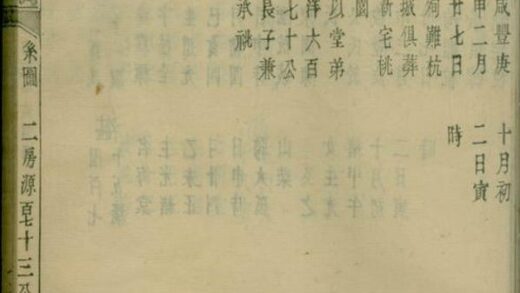 咸豐庚
申二月
廿七日
殉難杭
城俱葬
新宅桃
園
以堂弟
洋六百
七十公
長子兼
承祧
十月初
二日寅
時
系圖
二房源百七十三